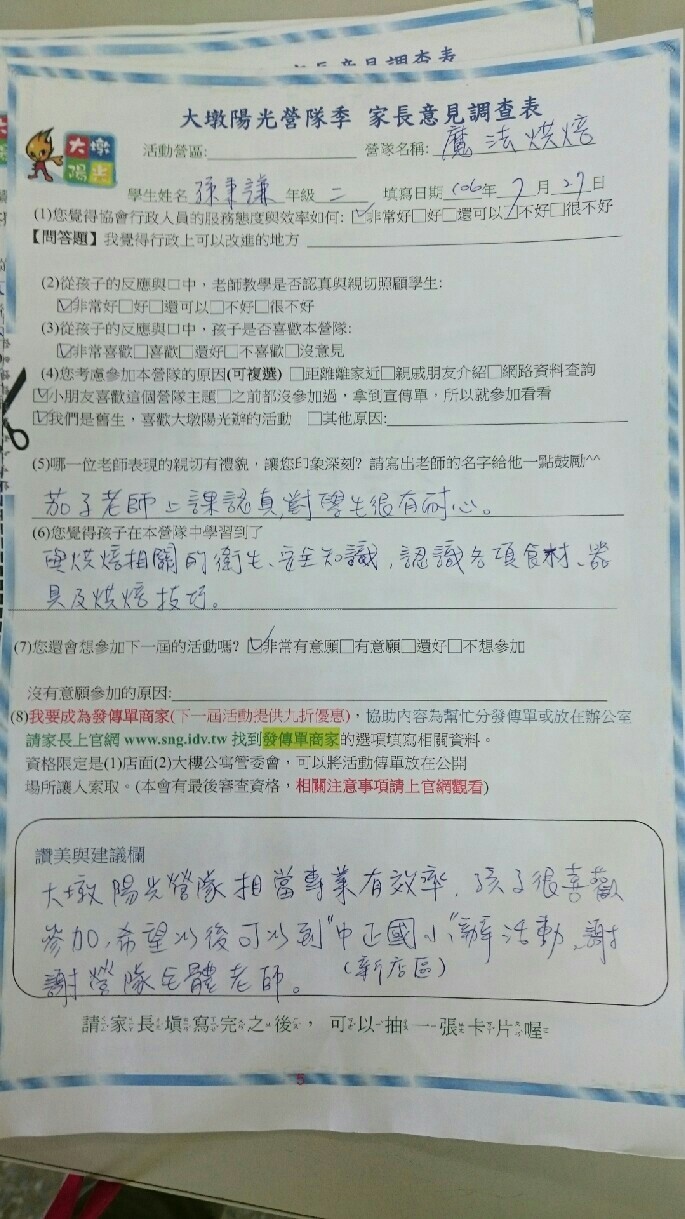 大墩陽光營隊季 家長意見調查表
大墩
陽光
活動營區: 營隊名稱: 魔法烘焙
學生姓名 孫秉謙 年級 二 填寫日期 106年 7月 27日
(1)您覺得協會行政人員的服務態度與效率如何: ☑非常好□好□還可以□不好□很不好
【問答題】我覺得行政上可以改進的地方
(2)從孩子的反應與口中，老師教學是否認真與親切照顧學生:
☑非常好□好□還可以□不好□很不好
(3)從孩子的反應與口中，孩子是否喜歡本營隊:
☑非常喜歡□喜歡□還好□不喜歡□沒意見
(4)您考慮參加本營隊的原因(可複選) □距離離家近□親戚朋友介紹□網路資料查詢
☑小朋友喜歡這個營隊主題□之前都沒參加過，拿到宣傳單，所以就參加看看
☑我們是舊生，喜歡大墩陽光辦的活動 □其他原因:
(5)哪一位老師表現的親切有禮貌，讓您印象深刻? 請寫出老師的名字給他一點鼓勵^^
茄子老師上課認真,對學生很有耐心。
(6)您覺得孩子在本營隊中學習到了
與烘焙相關的衛生、安全知識，認識各項食材、器
具及烘焙技巧。
(7)您還會想參加下一屆的活動嗎? ☑非常有意願□有意願□還好□不想參加
沒有意願參加的原因:
(8)我要成為發傳單商家(下一屆活動提供九折優惠)，協助內容為幫忙分發傳單或放在辦公室
請家長上官網 www.sng.idv.tw 找到發傳單商家的選項填寫相關資料。
資格限定是(1)店面(2)大樓公寓管委會，可以將活動傳單放在公開
場所讓人索取。(本會有最後審查資格，相關注意事項請上官網觀看)
讚美與建議欄
大墩陽光營隊相當專業有效率，孩子很喜歡
參加,希望以後可以到"中正國小"辦活動,謝
(新店區)
謝營隊全體老師。
請家長填寫完之後，可以抽一張卡片喔
5